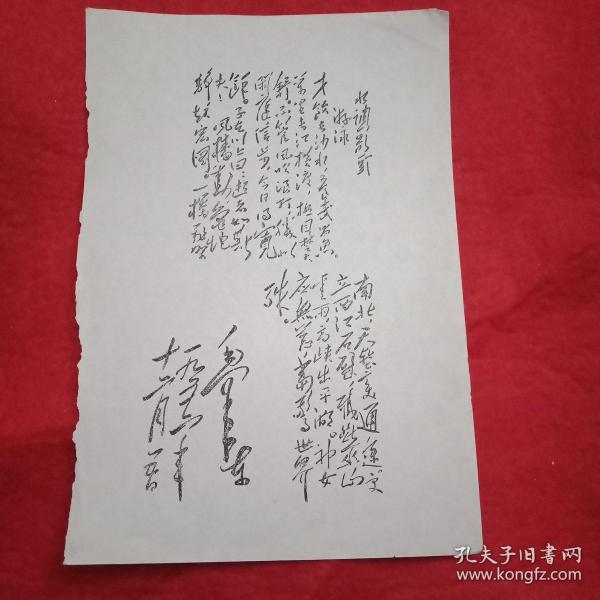 水調歌頭
游泳
才飲長沙水，又食武昌魚。
萬里長江橫渡，極目楚天
舒。不管風吹浪打，勝似
閑庭信步，今日得寬
餘。子在川上曰：逝者如斯
夫！風檣動，龜蛇
靜，起宏圖。一橋飛架
南北，天塹變通途。更
立西江石壁，截斷巫山
雲雨，高峽出平湖。神女
應無恙，當驚世界
殊。
毛澤東
一九五六年
十二月五日
孔夫子旧书网
www.kongfz.com